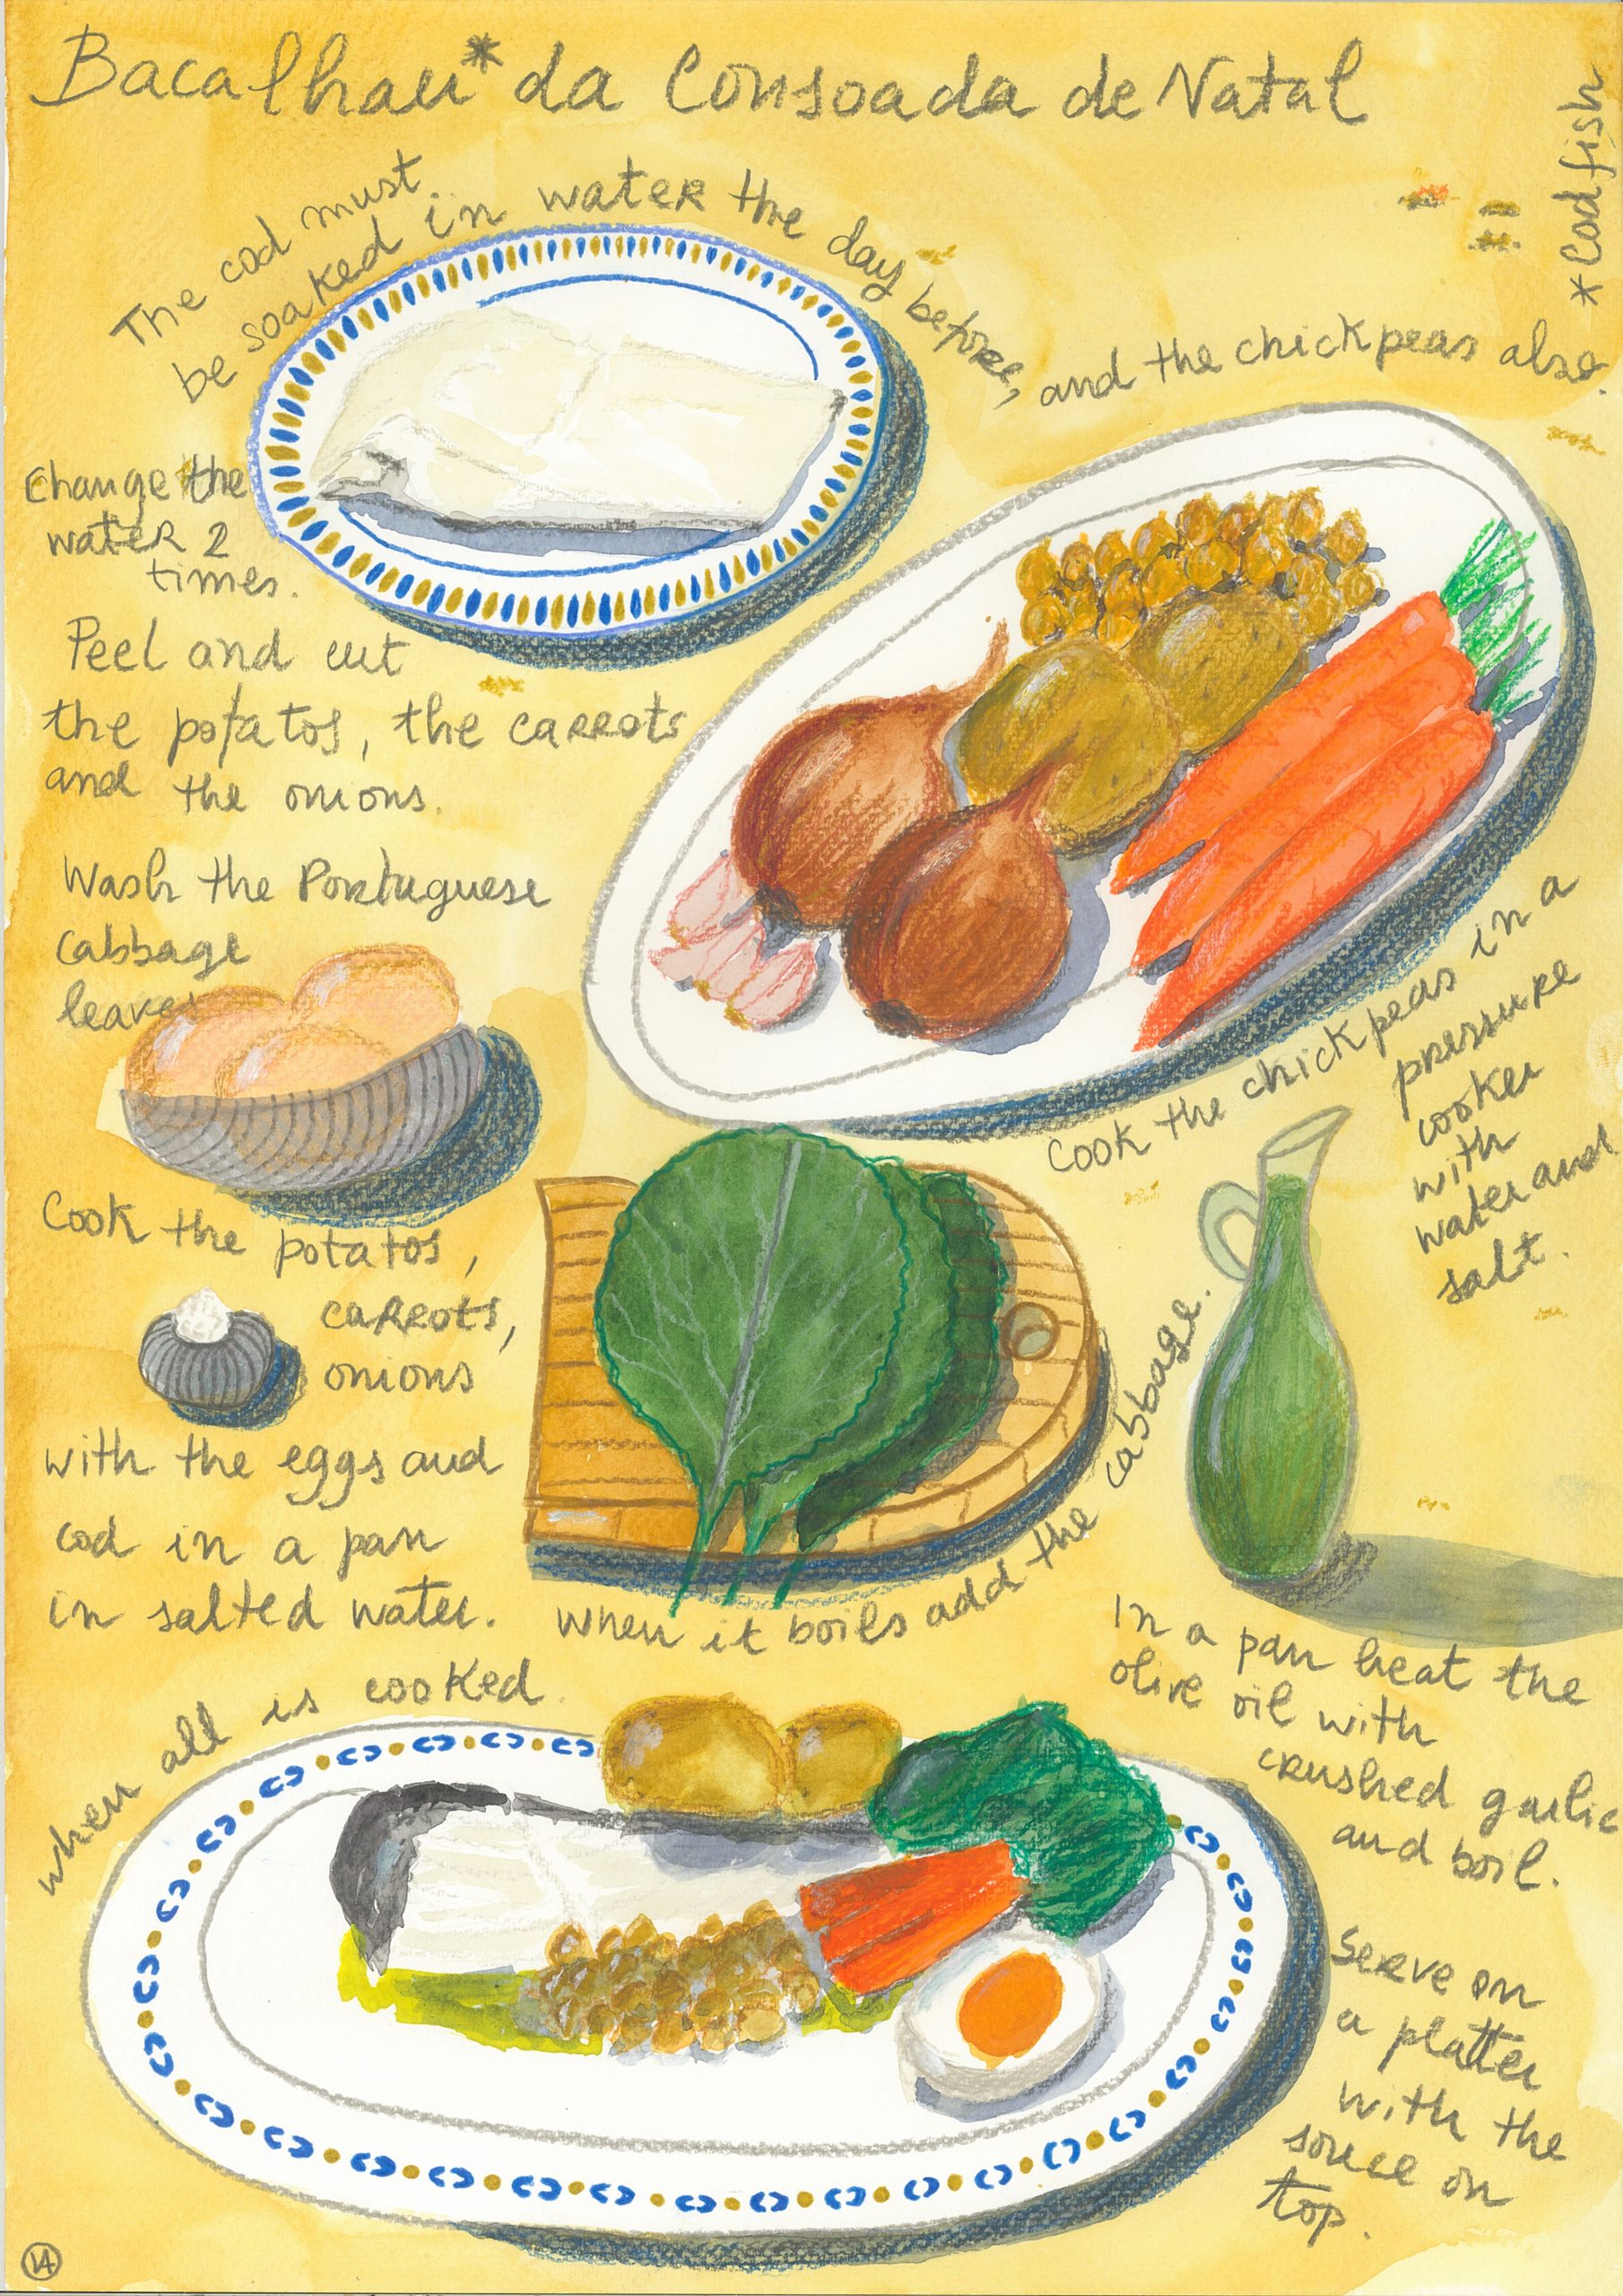 Bacalhau* da Consoada de Natal
*Codfish
The cod must
be soaked in water the day before, and the chickpeas also.
Change the
water 2
times.
Peel and cut
the potatos, the carrots
and the onions.
Wash the Portuguese
cabbage
leaves
Cook the chickpeas in a
pressure
cooker
with
water and
salt.
Cook the potatos,
carrots,
onions
with the eggs and
cod in a pan
in salted water.
When it boils add the cabbage.
In a pan heat the
olive oil with
crushed garlic
and boil.
When all is cooked
Serve on
a platter
with the
souce on
top.
14